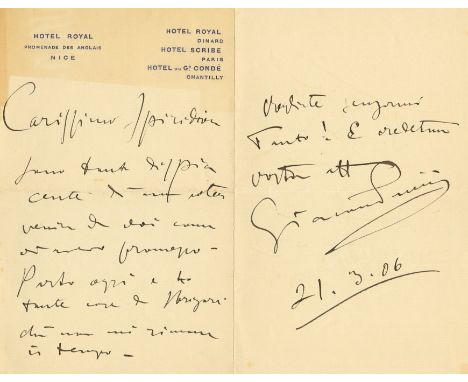 HOTEL ROYAL
PROMENADE DES ANGLAIS
NICE
HOTEL ROYAL
DINARD
HOTEL SCRIBE
PARIS
HOTEL DU Gᵈ CONDÉ
CHANTILLY
Carissimo Spiridion
sono tanto dispia
cente di non poter
venire da voi come
vi avevo promesso -
Parto oggi e ho
tante cose da sbrigare
che non mi rimane
il tempo -
Vogliate scusarmi
Tanto! E credetemi
vostro aff
Giacomo Puccini
21.3.06